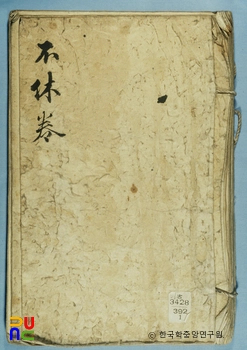 不休卷
3428
392
1
ⓒ 한국학중앙연구원